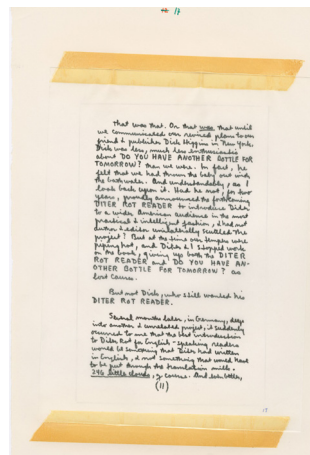 11
That was that. Or that was that until
we communicated our revised plans to our
friend & publisher Dick Higgins in New York.
Dick was less, much less enthusiastic
about DO YOU HAVE ANOTHER BOTTLE FOR
TOMORROW? than we were. In fact, he
felt that we had thrown the baby out with
the bathwater. And understandably, as I
look back upon it. Had he not, for two
years, proudly announced the forthcoming
DITER ROT READER to introduce Diter
to a wider American audience in the most
practical & intelligent fashion, & had not
author & editor unilaterally scuttled the
project? But at the time our tempers were
piping hot, and Diter & I stopped work
on the book, giving up both the DITER
ROT READER and DO YOU HAVE AN-
OTHER BOTTLE FOR TOMORROW? as
lost causes.
But not Dick, who still wanted his
DITER ROT READER.
Several months later, in Germany, deep
into another & unrelated project, it suddenly
occurred to me that the best introduction
to Diter Rot for English-speaking readers
would be something that Diter had written
in English, & not something that would have
to be put through the translation mill.
246 little clouds, of course. And even better,
(11)